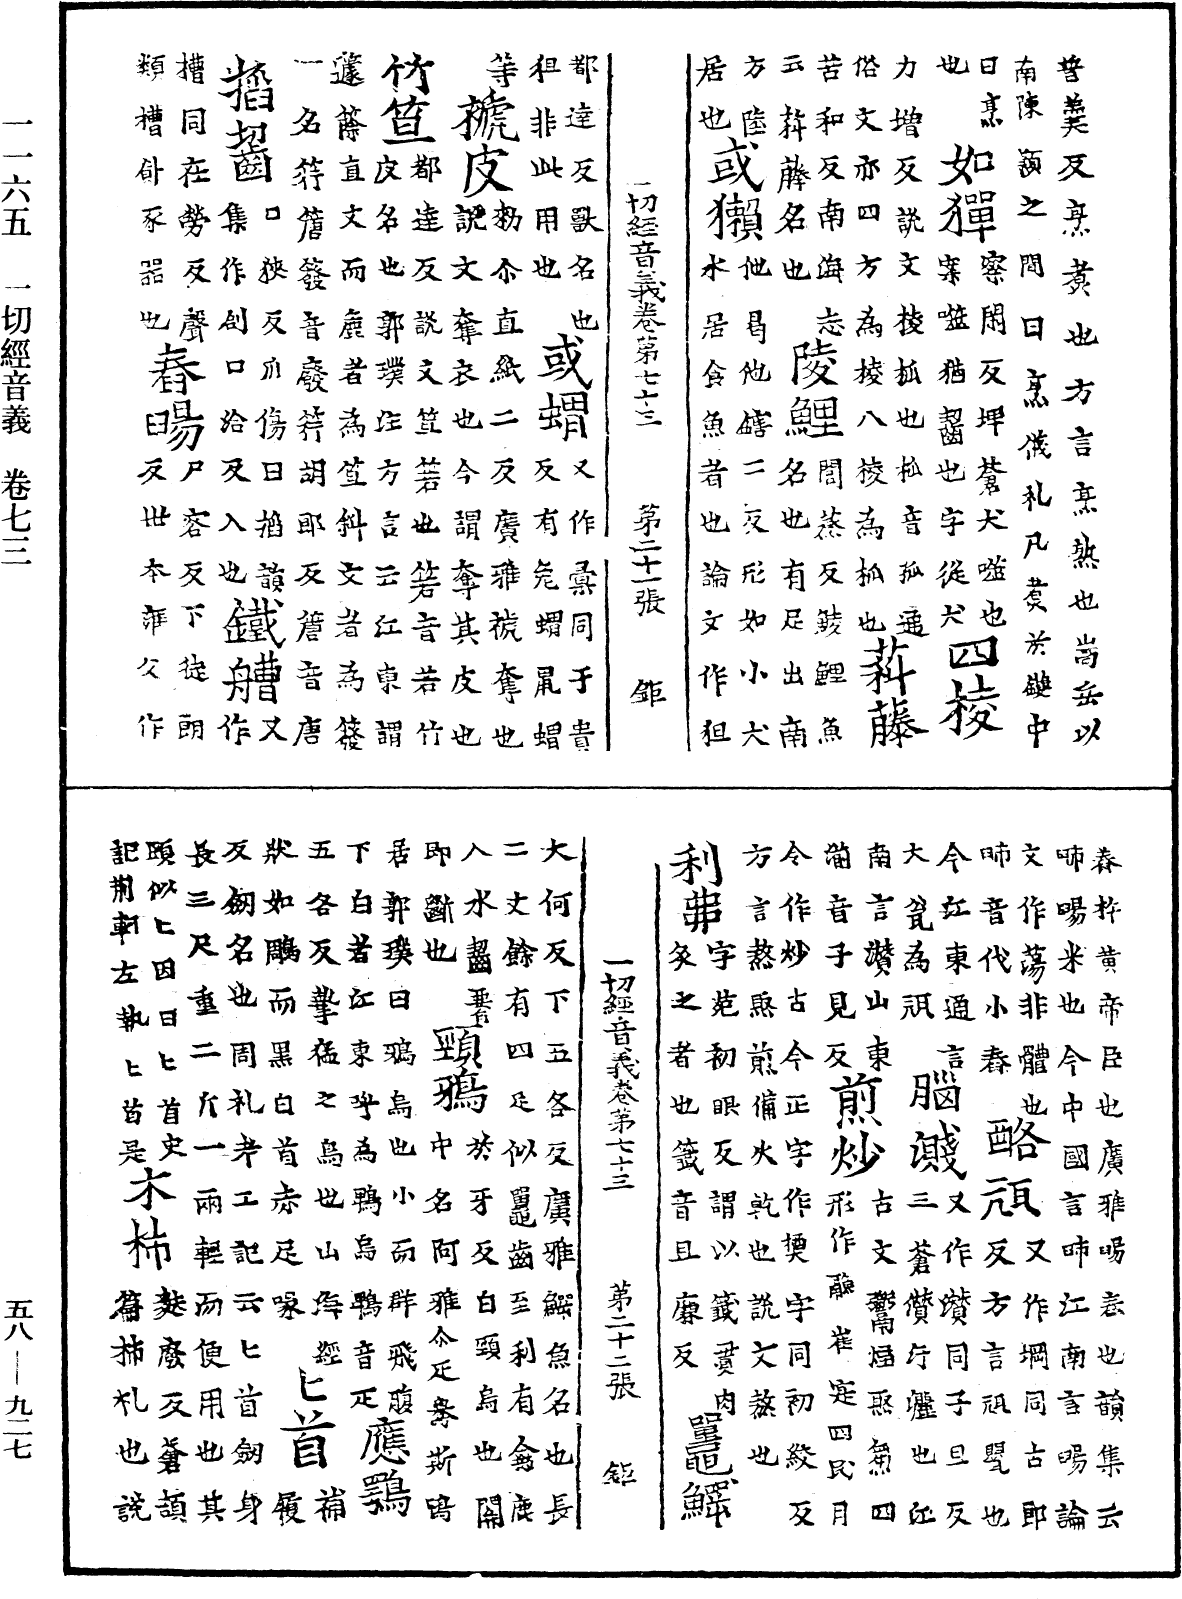 普羹反烹煑也方言烹熟也嵩岳以
南陳潁之間曰烹儀礼凡煑於鑊中
曰烹
也如獋寀闲反埤蒼犬噬也四棱
力增反說文棱柧也柧音孤通
俗文亦四方為棱八棱為柧也䓆藤
苦和反南海志
云䓆藤名也陵鯉閭蒸反鯪鯉魚
名也有足出南
方陸
居也或獺他曷他鎋二反形如小犬
水居食魚者也論文作狚
一切經音義卷第七十三 第二十一張 鉅
都達反獸名也
狚非此用也或蝟又作彚同于貴
反有兔蝟鼠蝟
等褫皮勑尒直紙二反廣雅褫奪也
說文奪衣也今謂奪其皮也
竹笪都達反說文笪箬也箬音若竹
皮名也郭璞注方言云江東謂
籧篨直文而麁者為笪斜文者為簝
一名䇶簹簝音廢䇶胡郎反簹音唐
搯齧口狹反爪傷曰搯韻
集作刽口洽反入也鐵艚又作
槽同在勞反聲
類槽飤豕器也舂暘尸容反下徒朗
反世本雍父作
舂杵黄帝臣也廣雅暘舂也韻集云
𠂹暘米也今中國言𠂹江南言暘論
文作蕩非體也
𠂹音代小舂酪瓨又作堈同古郎
反方言瓨甖也
今江東通言
大瓮為瓨腦濺又作灒同子旦反
三蒼灒汙灑也江
南言灒山東
湔音子見反煎炒古文䰞煼焣𤈦四
形作𩱦崔寔四民月
令作炒古今正字作㷅字同初絞反
方言熬焣煎備火乾也說文熬也
利弗字苑初眼反謂以籤貫肉
炙之者也籤音且廉反鼉鱷
一切經音義卷第七十三 第二十二張 鉅
大何反下五各反廣雅鰐魚名也長
二丈餘有四足似鼉齒至利有禽鹿
入水齧𦝫
即斷也頸鴉於牙反白頸烏也關
中名阿雅尒疋鸒斯鵖
居郭璞曰鴉烏也小而群飛腹
下白者江東呼為鴨烏鴨音疋應鶚
五各反摯猛之鳥也山海經
狀如鵰而黒白首赤足喙
匕首補履
反劔名也周礼考工記云匕首劔身
長三尺重二斤一兩輕而便用也其
頭似匕因曰匕首史
記荆軻左執匕首是木杮麩廢反蒼頡
篇杮札也說
一一六五 一切經音義 卷七三
五八—九二七